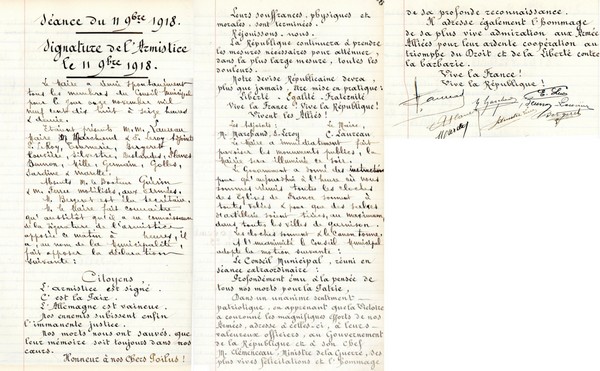 Séance du 11 9bre 1918.
Signature de l'Armistice
le 11 9bre 1918.
Le Maire a réuni spontanément
tous les membres du Conseil municipal
pour le jour onze novembre mil
neuf cent dix huit à seize heures
Étaient présents M.M. Laureau
Maire, M. Marchand, S. Leroy Adjoints
Silvestre,
Ville Germain, Gollas,
Absents M. le Docteur Guérin
& M. mobilisés, aux armées.
M. Bergerot est élu secrétaire.
M. le Maire fait connaître
qu'aussitôt qu'il a eu connaissance
de la signature de l'armistice
apposée ce matin à heures, il
a, au nom de la municipalité,
fait apposer la déclaration
suivante :
Citoyens
L'armistice est signé.
C'est la Paix.
L'Allemagne est vaincue.
Nos ennemis subissent enfin
l'immanente justice.
Nos morts nous ont sauvés, que
leur mémoire soit toujours dans nos
cœurs.
Honneur à nos Chers Poilus !
Leurs souffrances, physiques et
morales, sont terminées.
Réjouissons-nous.
La République continuera à prendre
les mesures nécessaires pour atténuer,
dans la plus large mesure, toutes les
douleurs.
Notre devise Républicaine devra,
plus que jamais être mise en pratique :
Liberté - Egalité - Fraternité
Vive la France ! Vive la République !
Vivent les Alliés !
Les Adjoints : Le Maire,
M. Marchand, S. Leroy C. Laureau
Le Maire a immédiatement fait
pavoiser les monuments publics, la
Mairie sera illuminée ce soir.
Le Gouvernement a donné des instructions
pour qu'aujourd'hui à l'heure où nous
sommes réunis toutes les cloches
des Églises de France sonnent à
toutes volées & pour que des salves
d'artillerie soient tirées, au maximum,
dans toutes les villes de garnison.
Les cloches sonnent & le canon tonne.
A l'unanimité le Conseil Municipal
adopte la motion suivante :
Le Conseil Municipal, réuni en
séance extraordinaire :
Profondément ému à la pensée de
tous nos morts pour la Patrie,
Dans un unanime sentiment
patriotique, en apprenant que la Victoire
a couronné les magnifiques efforts de nos
Armées, adresse à celles-ci, à leurs
valeureux officiers, au Gouvernement
de la République et à son Chef
M. Clémenceau, Ministre de la Guerre, ses
plus vives félicitations et l'hommage
de sa profonde reconnaissance.
Il adresse également l'hommage
de sa plus vive admiration aux Armées
Alliées pour leur ardente coopération au
triomphe du Droit et de la Liberté contre
la barbarie.
Vive la France !
Vive la République !